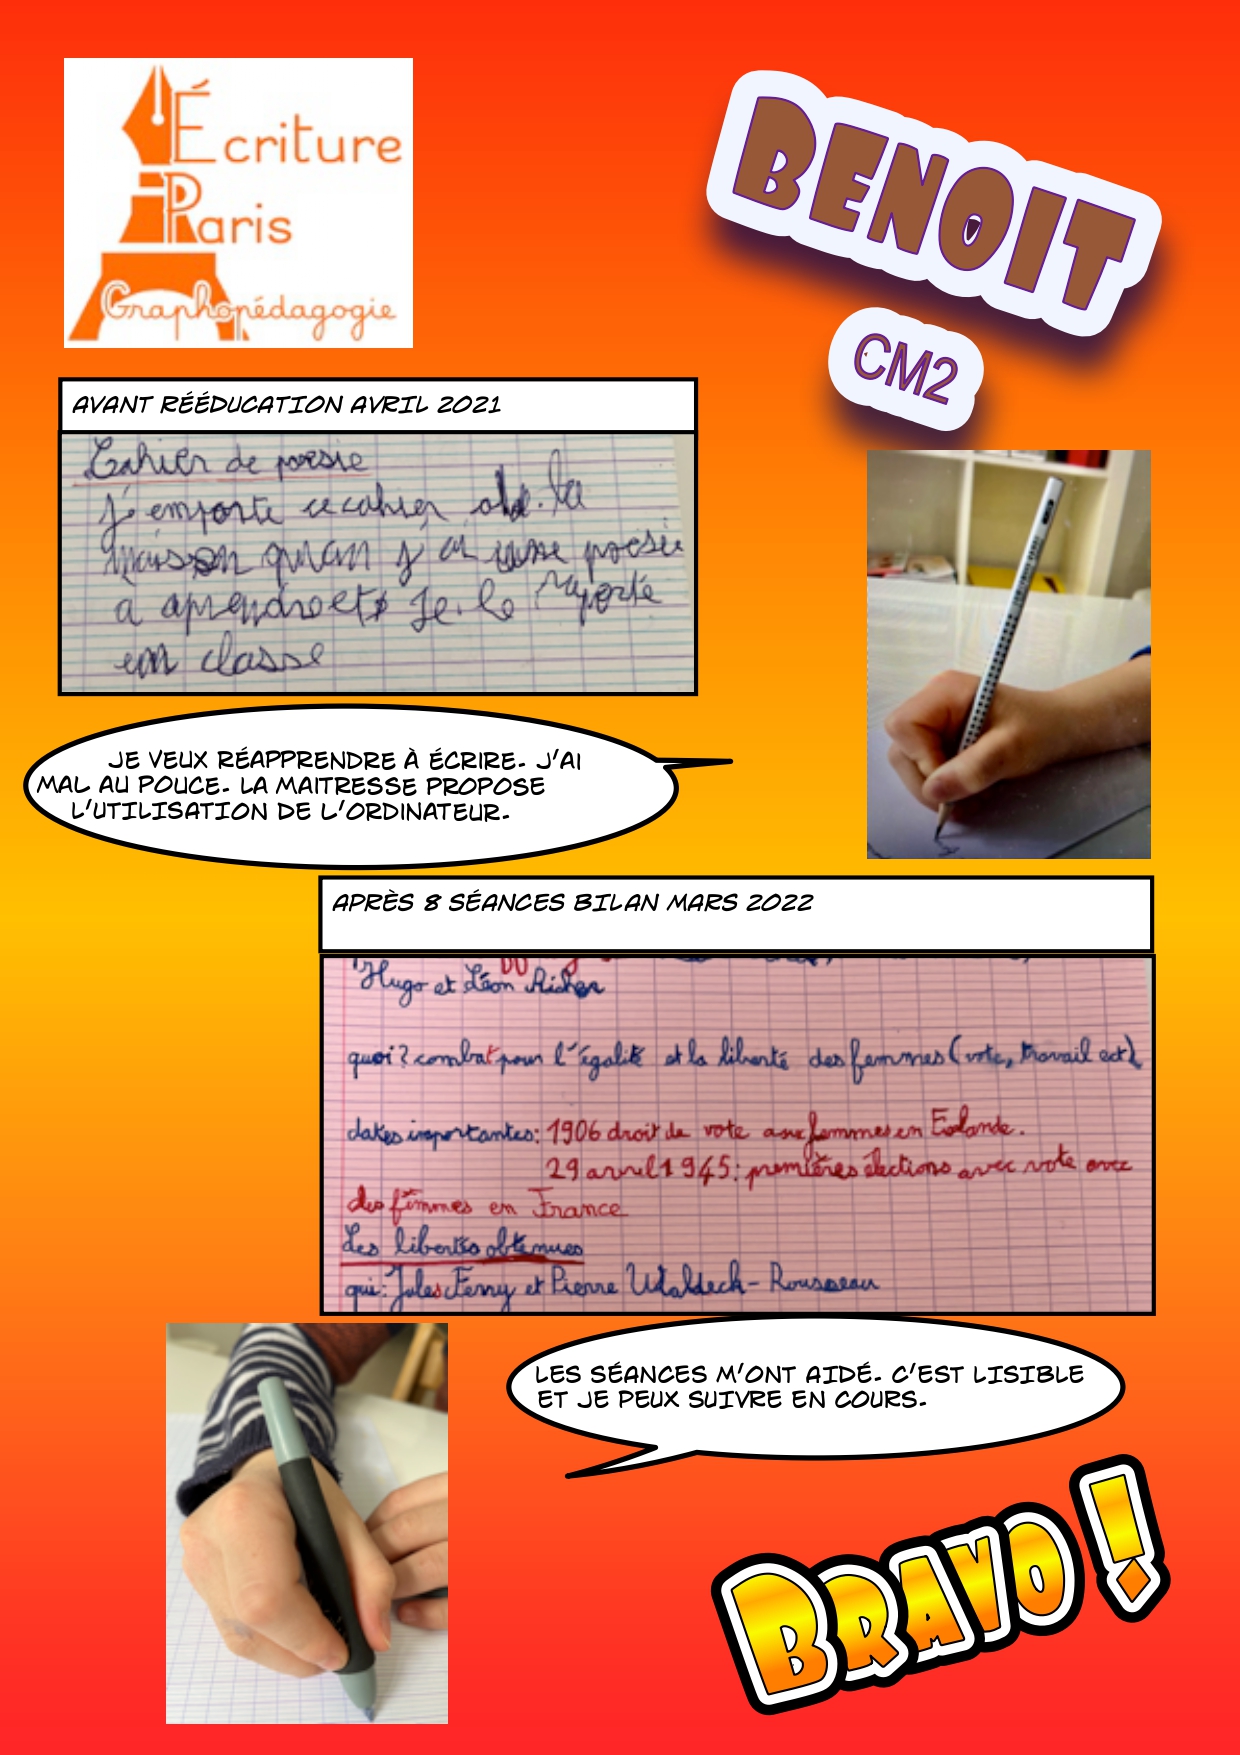 Écriture
Paris
Graphopédagogie
BENOIT
CM2
AVANT RÉÉDUCATION AVRIL 2021
Cahier de poesie
j'emporte ce cahier a la
maison quan j'ai une poesie
a aprendre et je le raporte
en classe
JE VEUX RÉAPPRENDRE À ÉCRIRE. J'AI
MAL AU POUCE. LA MAITRESSE PROPOSE
L'UTILISATION DE L'ORDINATEUR.
APRÈS 8 SÉANCES BILAN MARS 2022
Hugo et Léon Richer
quoi? combat pour l'égalité et la liberté des femmes (vote, travail ect)
dates importantes: 1906 droit de vote aux femmes en
29 avril 1945: premières élections avec vote avec
des femmes en France
Les libertés obtenues
qui: Jules Ferry et Pierre Waldeck-Rousseau
LES SÉANCES M'ONT AIDÉ. C'EST LISIBLE
ET JE PEUX SUIVRE EN COURS.
BRAVO !